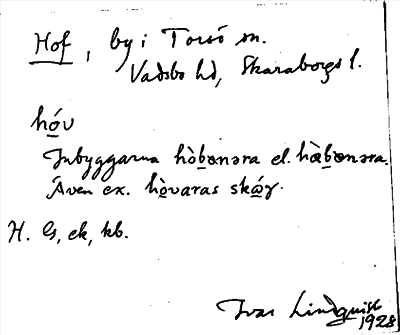 Hof, by i Torsö sn.
Vadsbo hd, Skaraborgs l.
hóv
Inbyggarna hòbᴔnəra el. hòbᴔnəra.
Även ex. hòvaras skóγ.
H. G, ek, kb.
Ivar Lindquist
1928